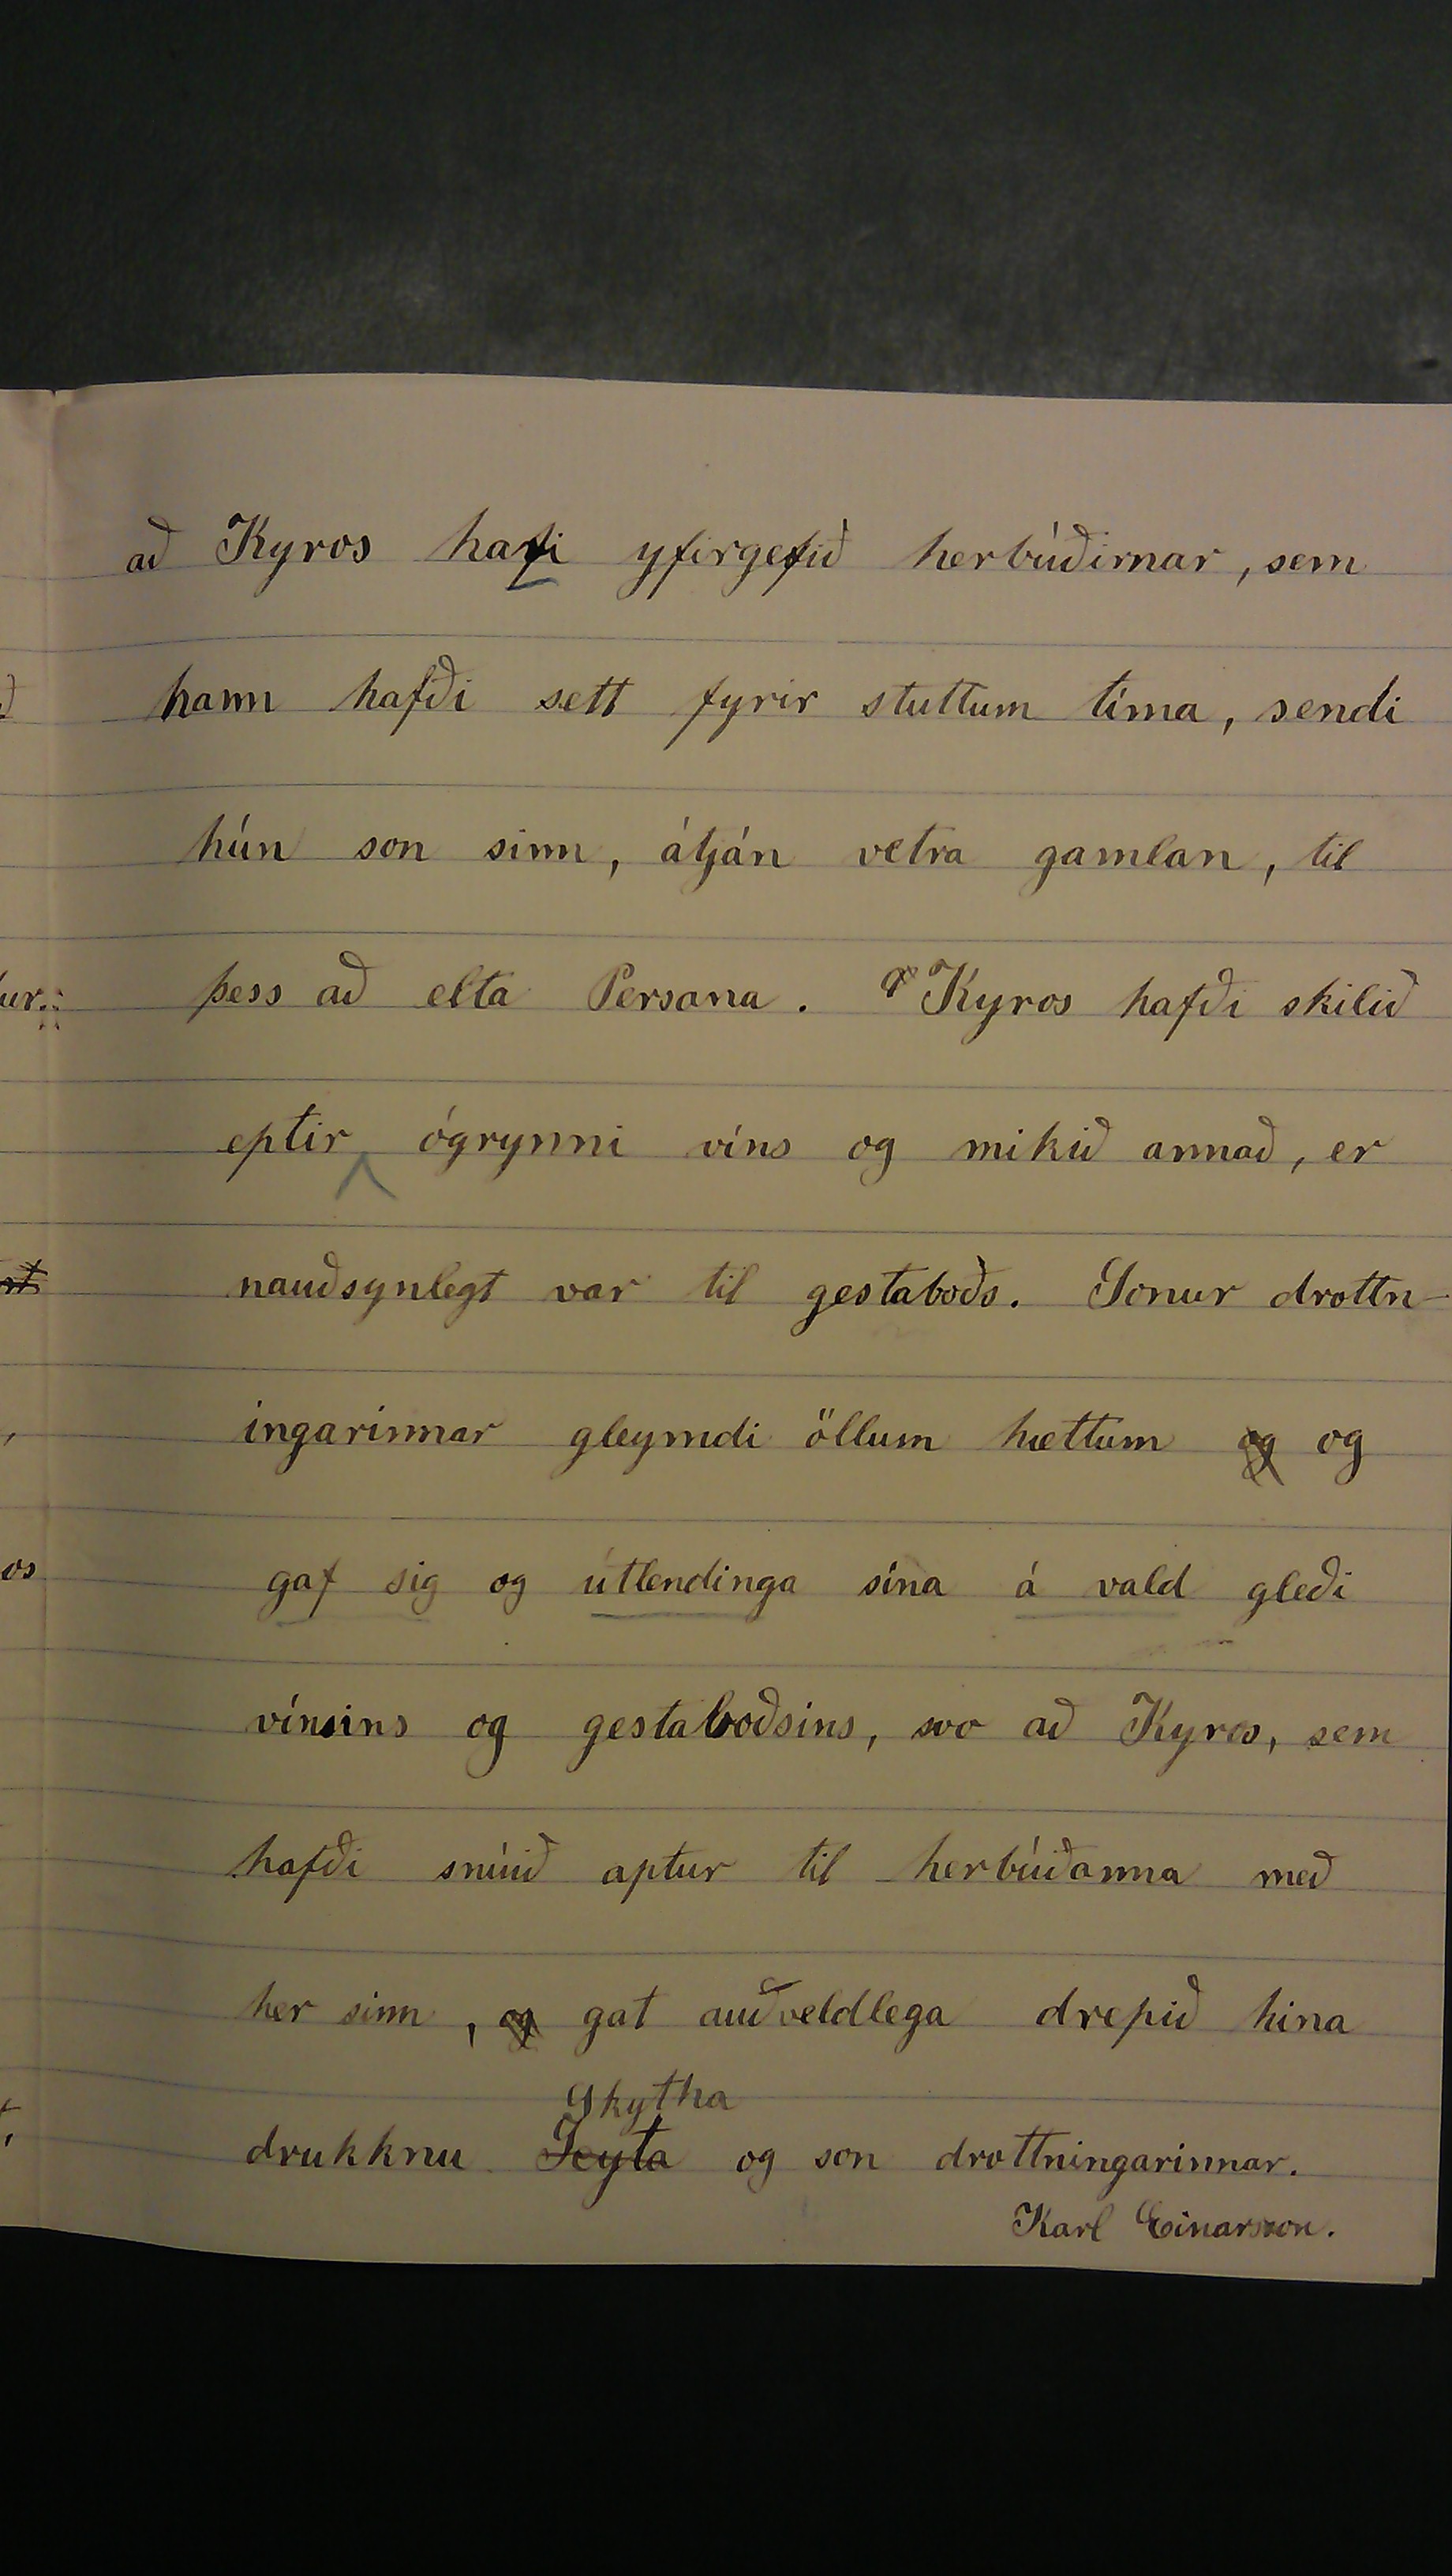 að Kyros hafi yfirgefið herbúðirnar, sem
hann hafði sett fyrir stuttum tíma, sendi
hún son sinn, átján vetra gamlan, til
þess að elta Persana. Kyros hafði skilið
eptir ógrynni víns og mikið annað, er
nauðsynlegt var til gestaboðs. Sonur drottn-
ingarinnar gleymdi öllum hættum og og
gaf sig og útlendinga sína á vald gleði
vínsins og gestaboðsins, svo að Kyros, sem
hafði snúið aptur til herbúðanna með
her sinn, og gat auðveldlega drepið hina
Skytha
drukknu Scyta og son drottningarinnar.
Karl Einarsson.